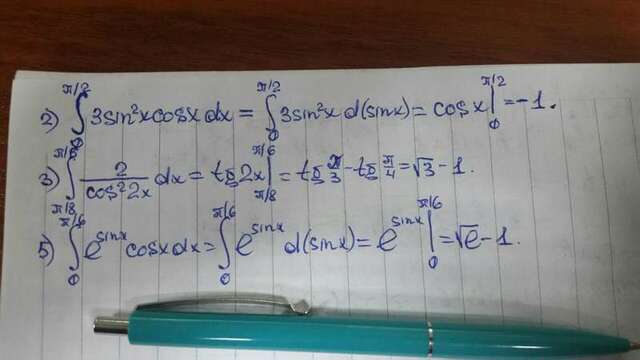 2) ∫₀^{π/2} 3sin²x cosx dx = ∫₀^{π/2} 3sin²x d(sinx) = cosx |₀^{π/2} = -1.
3) ∫_{π/8}^{π/6} 2/cos²2x dx = tg2x |_{π/8}^{π/6} = tg π/3 - tg π/4 = √3 - 1.
5) ∫₀^{π/6} e^{sinx} cosx dx = ∫₀^{π/6} e^{sinx} d(sinx) = e^{sinx} |₀^{π/6} = √e - 1.